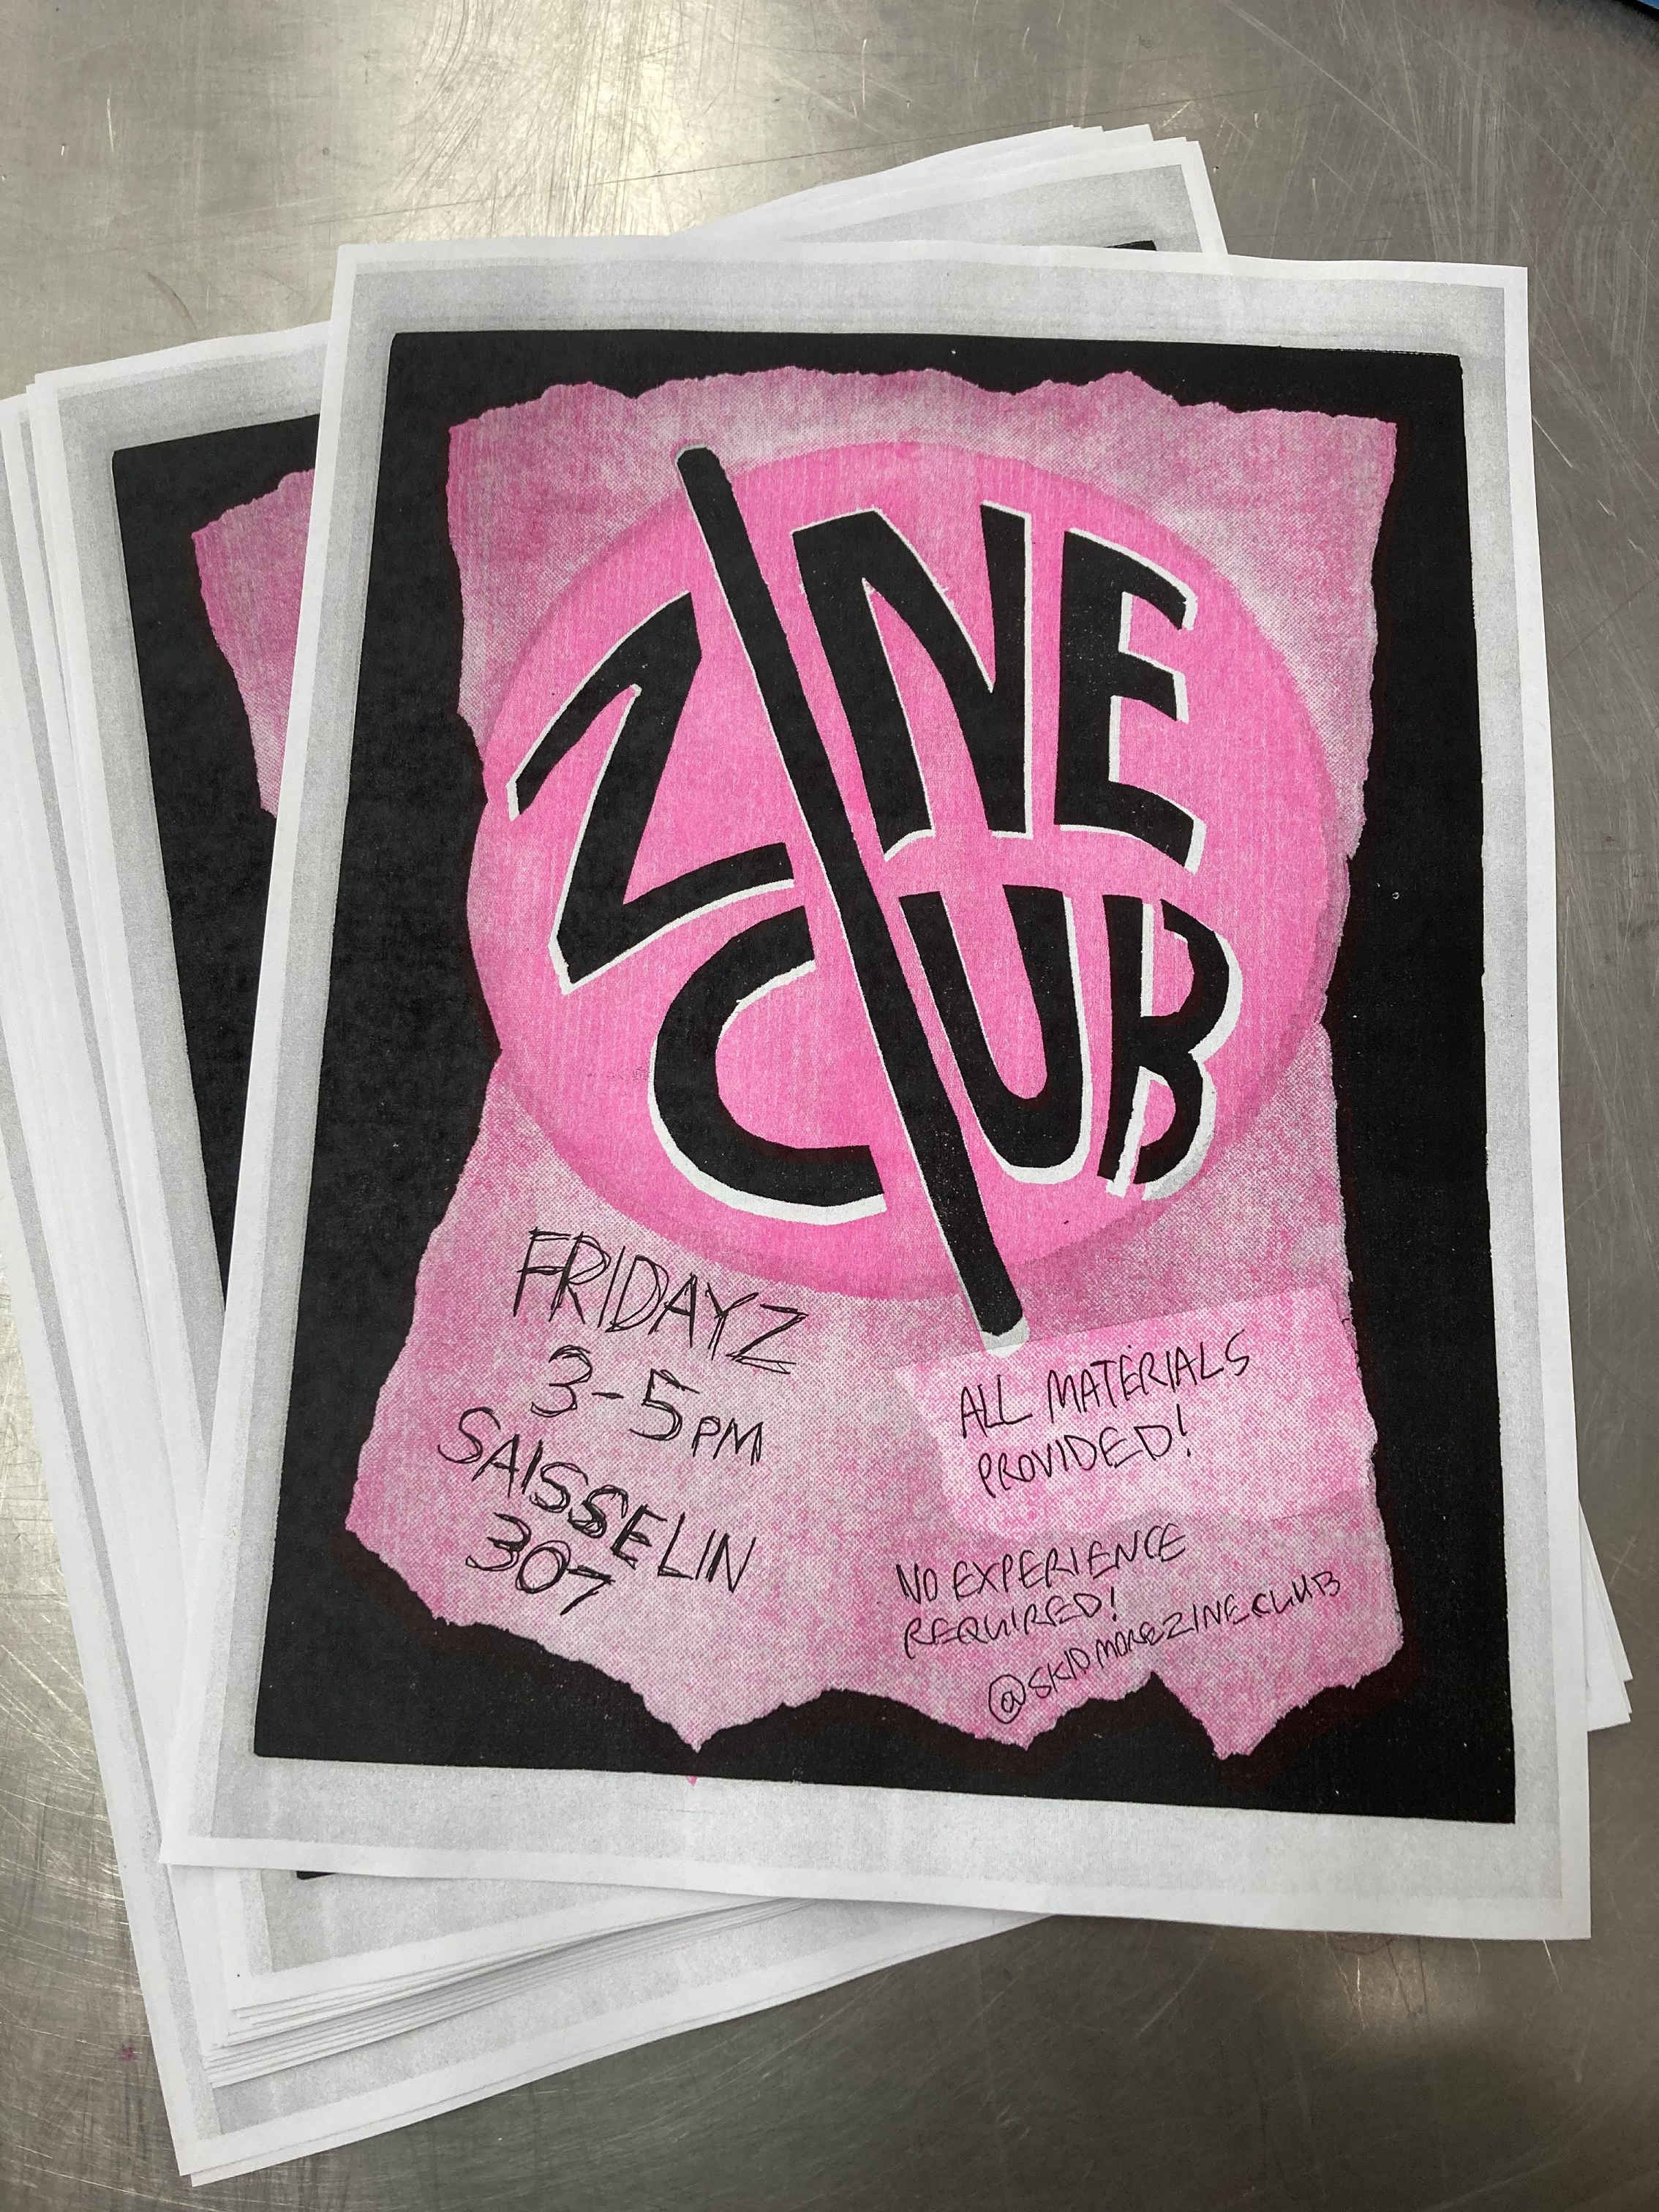 ZINE
CLUB
FRIDAYZ
3-5PM
SAISSELIN
307
ALL MATERIALS
PROVIDED!
NO EXPERIENCE
REQUIRED!
@SKIDMOREZINECLUB